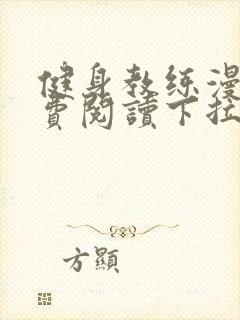 健身教练漫
費閱讀下拉
方顯